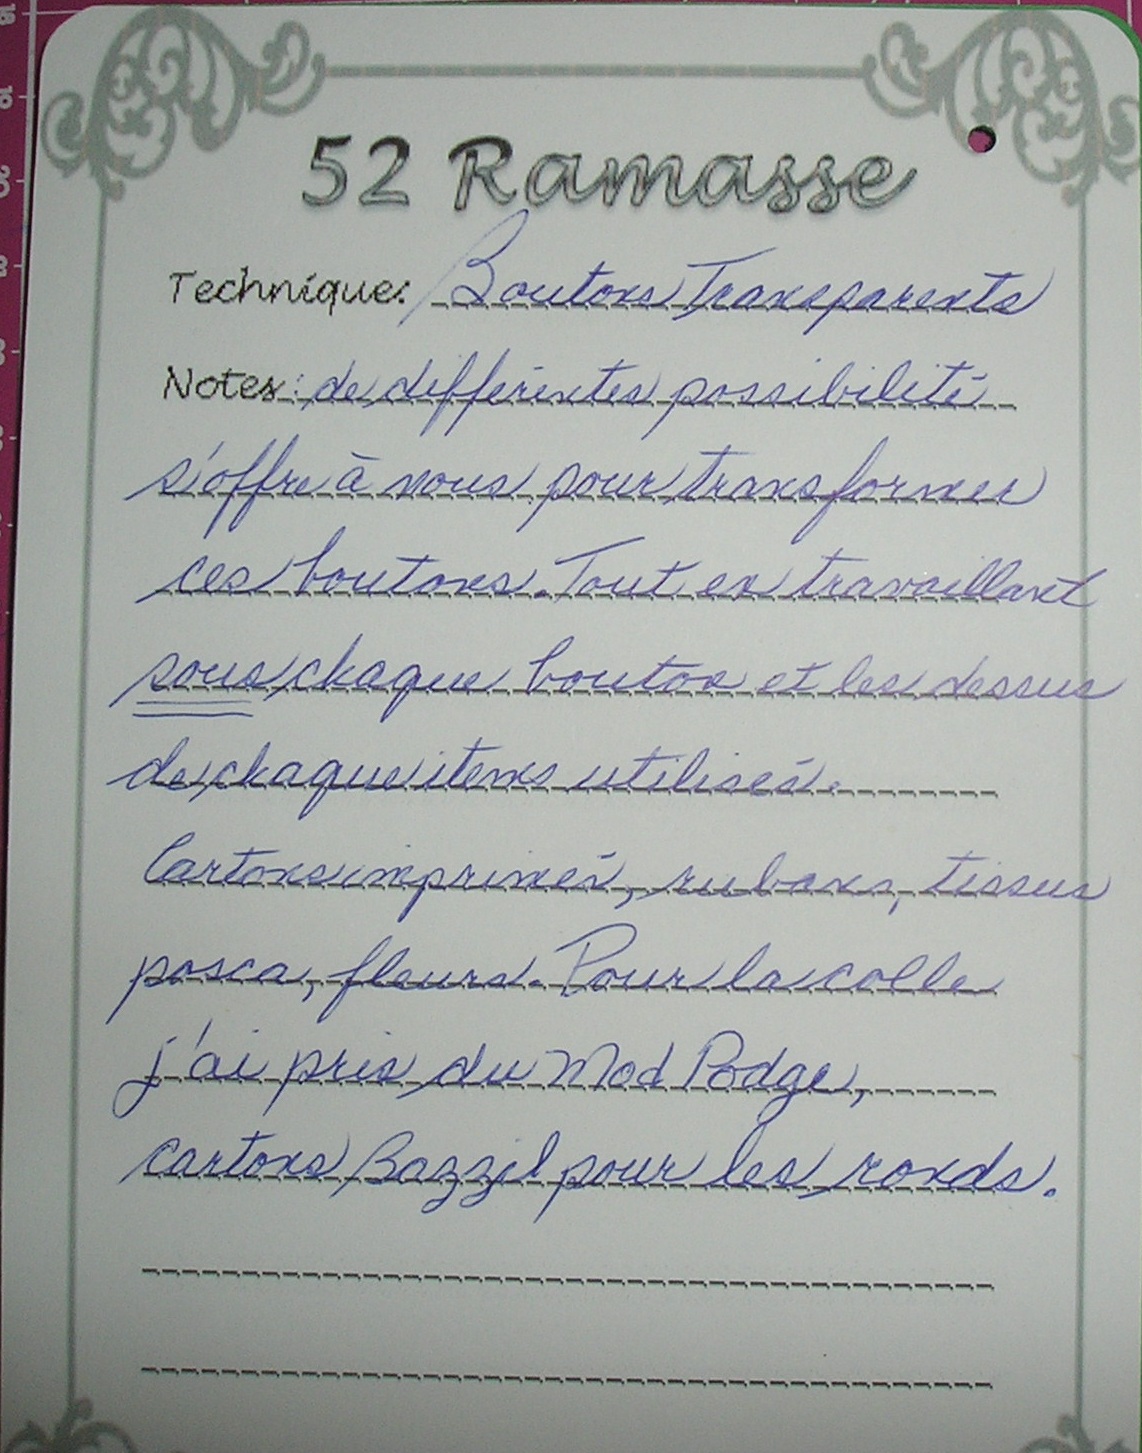 52 Ramasse
Technique: Boutons Transparents
Notes: de différentes possibilité
s'offre à nous pour transformer
ces boutons. Tout en travaillant
sous chaque bouton et les dessus
de chaque items utilisés.
Cartons imprimés, rubans, tissus
posca, fleurs. Pour la colle
j'ai pris du Mod Podge,
cartons Bazzil pour les ronds.